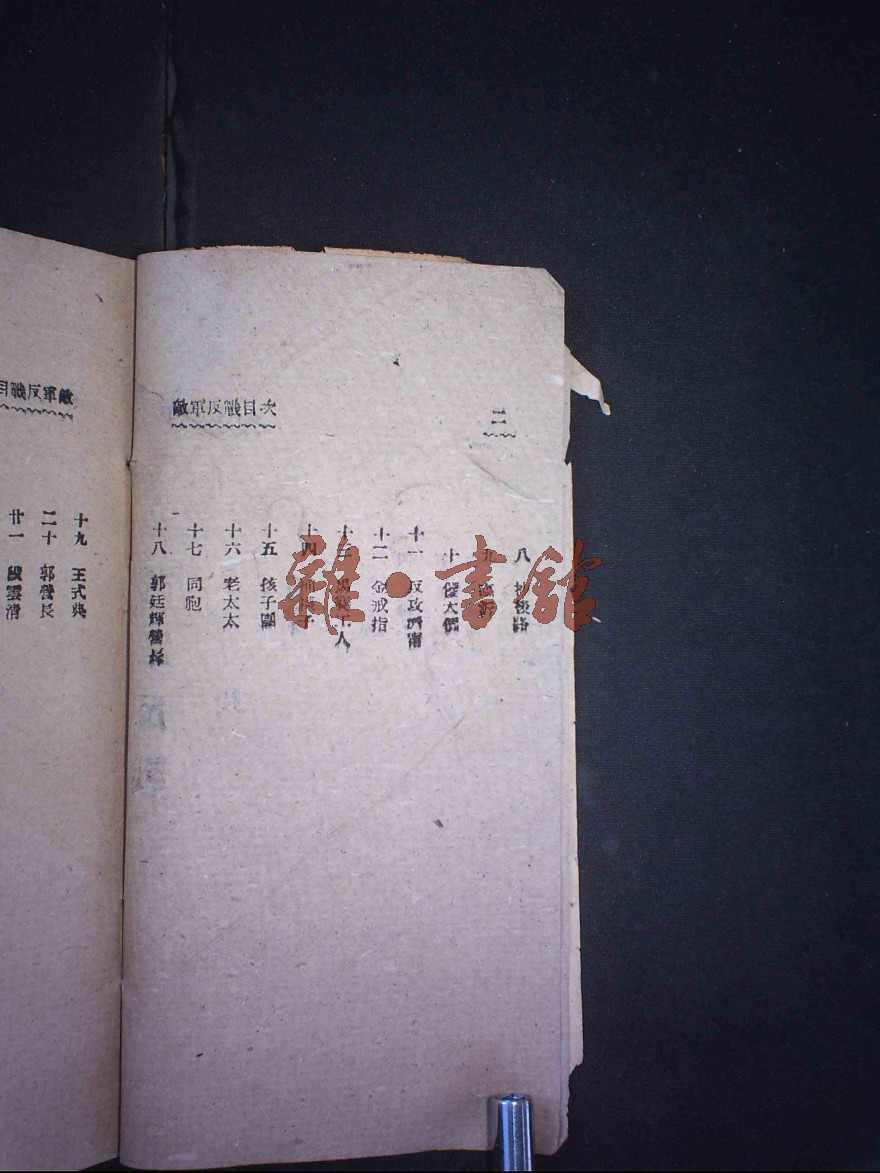 敵軍反戰目次
二
八
十 傻大個
十一 反攻濟南
十二 金戒指
十三
十四
十五 孩子團
十六 老太太
十七 同胞
十八 郭廷輝營長
敵軍反戰目
十九 王式奥
二十 郭營長
廿一 段雲清
雜·書館